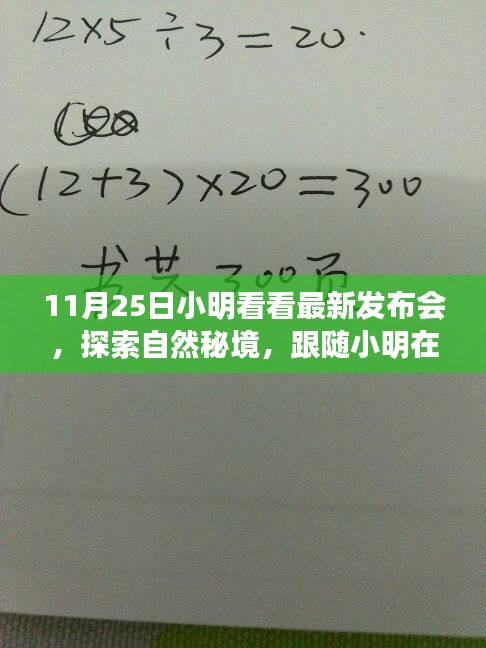 12×5÷3=20.
(12+3)×20=300
书共300页
11月25日小明看看最新发布会
，探索自然秘境，跟随小明在